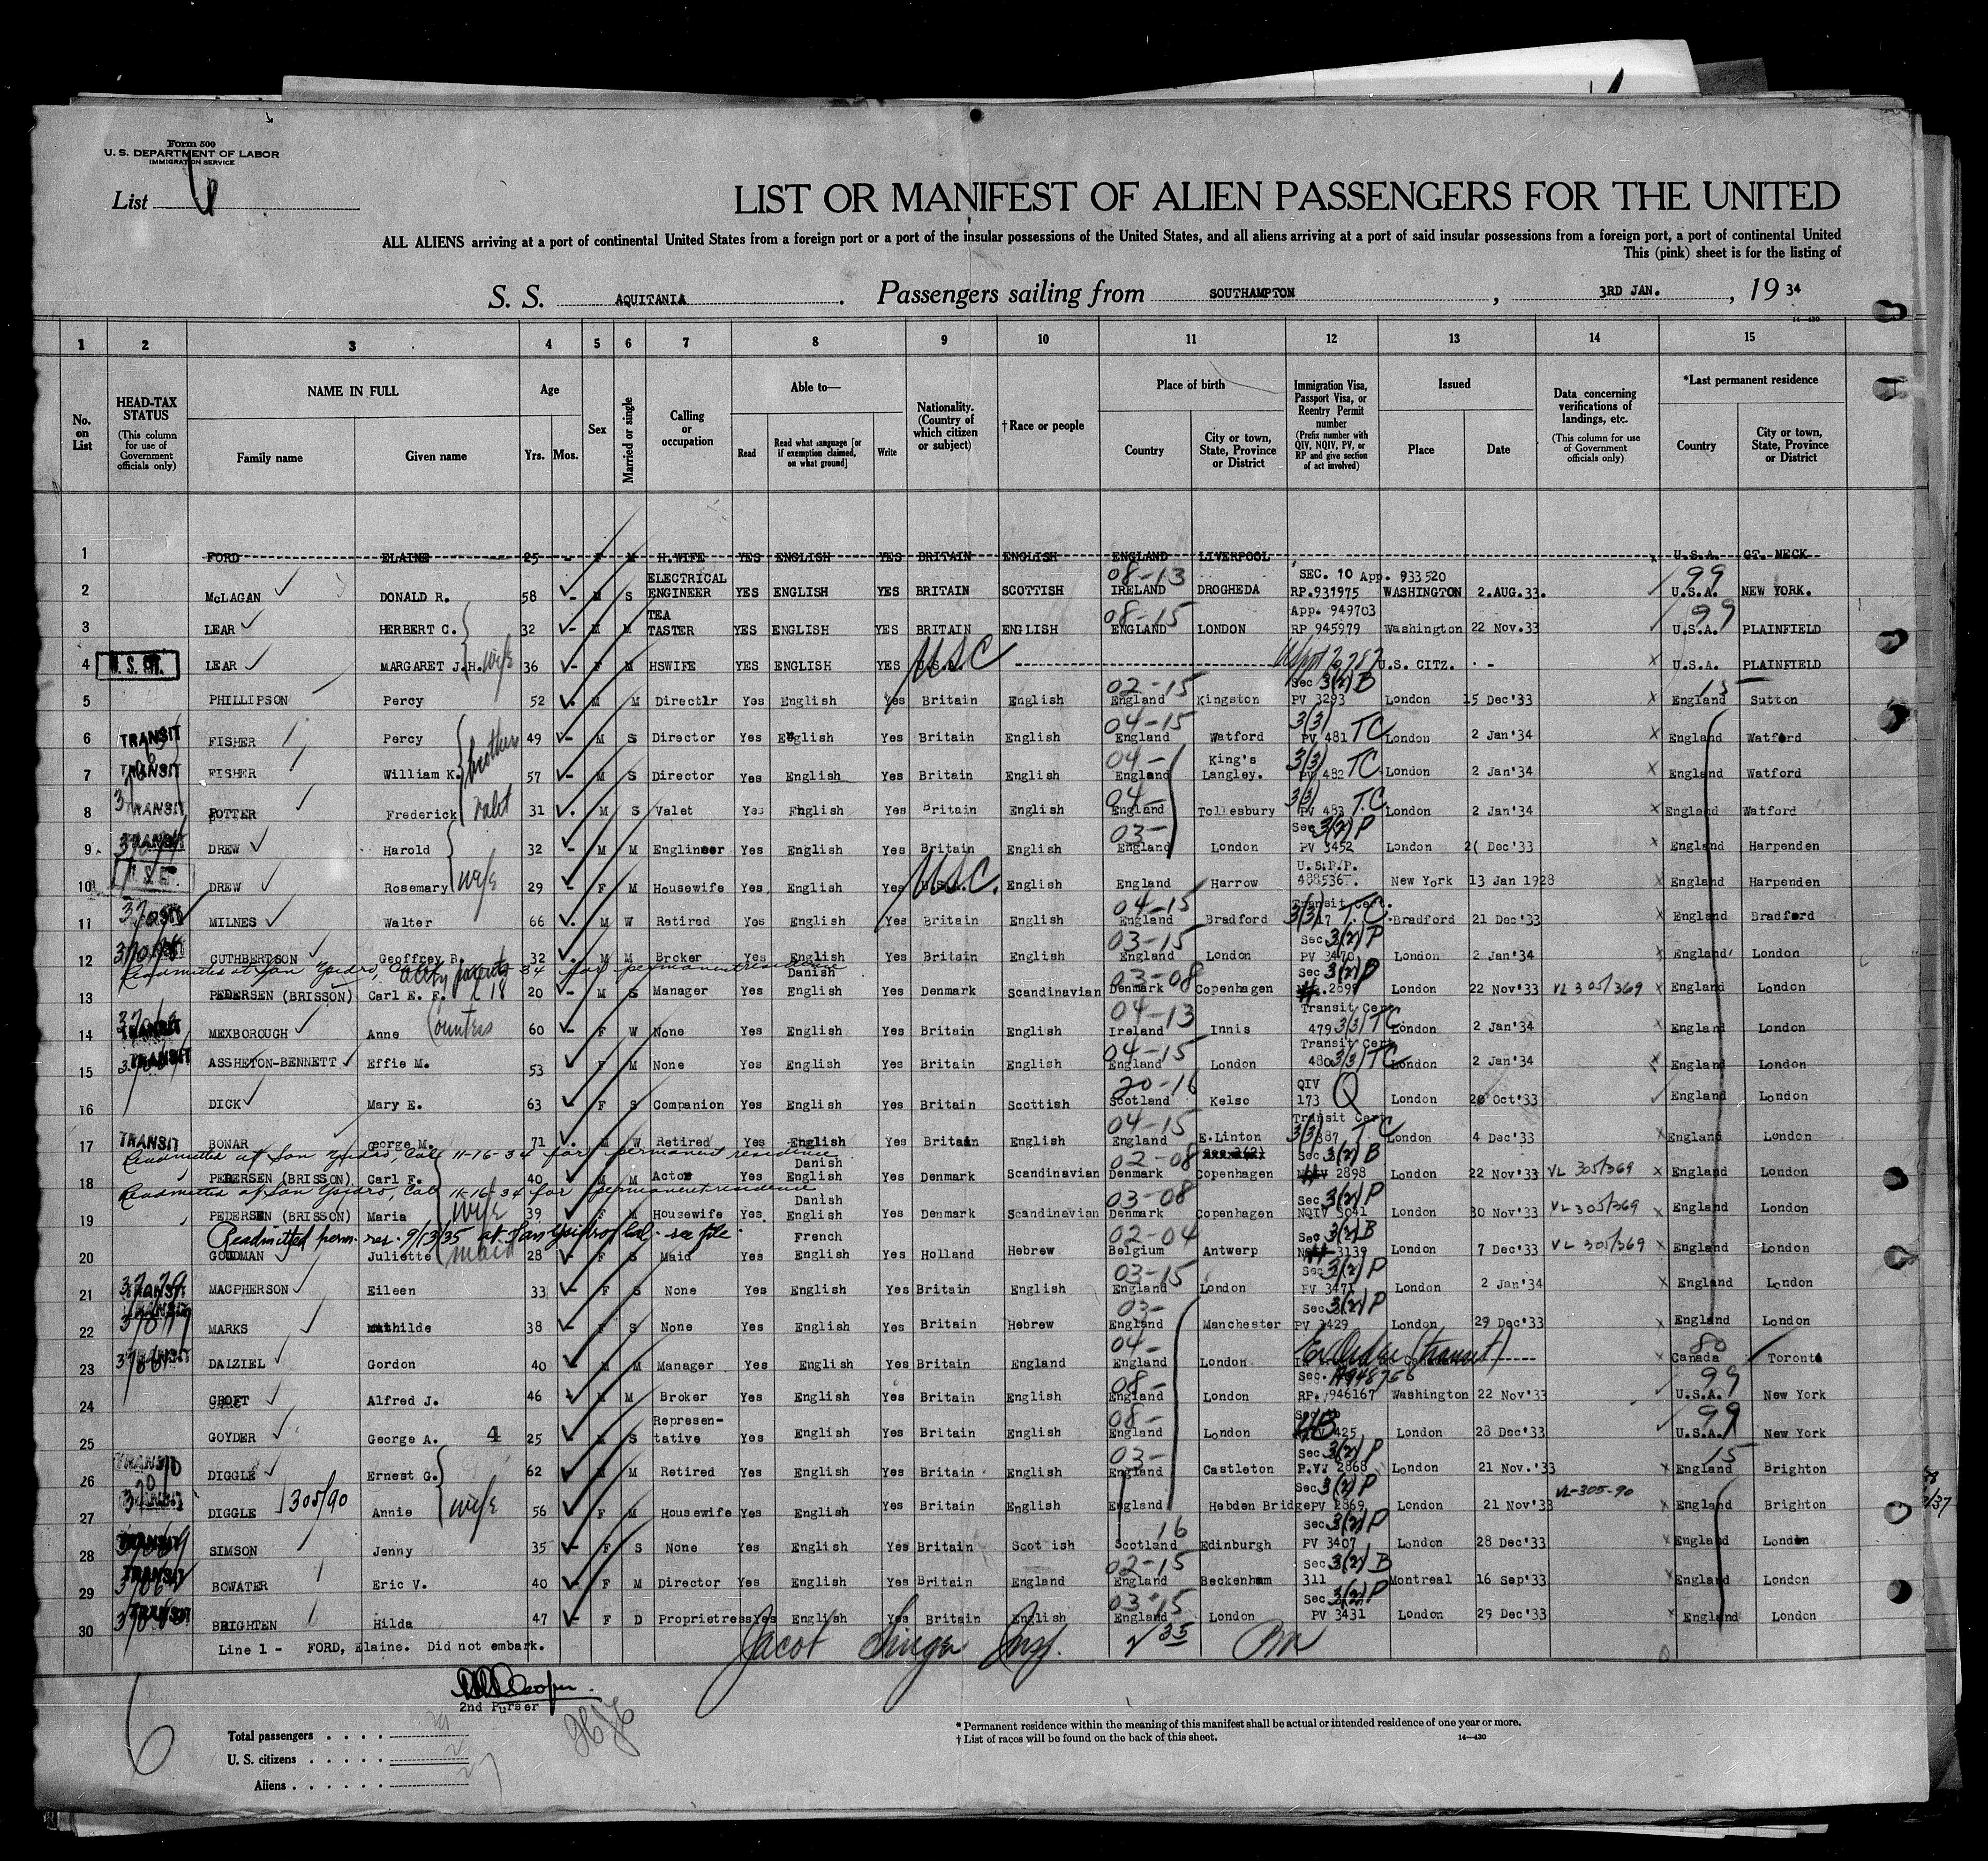 Form 500
U. S. DEPARTMENT OF LABOR
IMMIGRATION SERVICE
List 6
LIST OR MANIFEST OF ALIEN PASSENGERS FOR THE UNITED
ALL ALIENS arriving at a port of continental United States from a foreign port or a port of the insular possessions of the United States, and all aliens arriving at a port of said insular possessions from a foreign port, a port of continental United
This (pink) sheet is for the listing of
S. S. AQUITANIA. Passengers sailing from SOUTHAMPTON, 3RD JAN., 19 34
14-430
1 2 3 4 5 6 7 8 9 10 11 12 13 14 15
No. on List
HEAD-TAX STATUS (This column for use of Government officials only)
NAME IN FULL Family name Given name
Age Yrs. Mos.
Sex
Married or single
Calling or occupation
Able to— Read Read what language [or if exemption claimed, on what ground] Write
Nationality. (Country of which citizen or subject)
†Race or people
Place of birth Country City or town, State, Province or District
Immigration Visa, Passport Visa, or Reentry Permit number (Prefix number with QIV, NQIV, PV, or RP and give section of act involved)
Issued Place Date
Data concerning verifications of landings, etc. (This column for use of Government officials only)
*Last permanent residence Country City or town, State, Province or District
1 FORD ELAINE 25 - F M H.WIFE YES ENGLISH YES BRITAIN ENGLISH ENGLAND LIVERPOOL U.S.A. GT. NECK
2 McLAGAN DONALD R. 58 - M S ELECTRICAL ENGINEER YES ENGLISH YES BRITAIN SCOTTISH 08-13 IRELAND DROGHEDA SEC. 10 App. 933520 RP.931975 WASHINGTON 2.AUG.33. 99 U.S.A. NEW YORK.
3 LEAR HERBERT C. 32 - M M TEA TASTER YES ENGLISH YES BRITAIN ENGLISH 08-15 ENGLAND LONDON App. 949703 RP 945979 Washington 22 Nov.33 99 U.S.A. PLAINFIELD
4 LEAR MARGARET J.H. wife 36 - F M HSWIFE YES ENGLISH YES U.S.A. USC U.S. CITZ. - U.S.A. PLAINFIELD
5 PHILLIPSON Percy 52 M M Directlr Yes English Yes Britain English 02-15 England Kingston Sec 3(2)B PV 3293 London 15 Dec'33 15 England Sutton
6 TRANSIT FISHER Percy brothers 49 - M S Director Yes English Yes Britain English 04-15 England Watford 3(3) PV 481 TC London 2 Jan'34 England Watford
7 TRANSIT FISHER William K. 57 - M S Director Yes English Yes Britain English 04- England King's Langley. 3(3) PV 482 TC London 2 Jan'34 England Watford
8 TRANSIT POTTER Frederick valet 31 M S Valet Yes English Yes Britain English 04- England Tollesbury 3(3) PV 483 T.C London 2 Jan'34 England Watford
9 TRANSIT DREW Harold 32 - M M Englineer Yes English Yes Britain English 03- England London Sec 3(2)P PV 3452 London Dec'33 England Harpenden
10 DREW Rosemary wife 29 - F M Housewife Yes English Yes U.S.A. USC. English England Harrow U.S.P.P. 488536 New York 13 Jan 1928 England Harpenden
11 MILNES Walter 66 M W Retired Yes English Yes Britain English 04-15 England Bradford Transit Cert. 3(3) 17 T.C. Bradford 21 Dec'33 England Bradford
12 CUTHBERTSON Geoffrey B. 32 M M Broker Yes English Yes Britain English 03-15 England London Sec 3(2)P PV 3470 London 2 Jan'34 England London
Readmitted at San Ysidro, Cal 34 for permanent residence
13 PEDERSEN (BRISSON) Carl E. F. 20 - M S Manager Yes Danish English Yes Denmark Scandinavian 03-08 Denmark Copenhagen Sec 3(2)P 2899 London 22 Nov'33 VL 305/369 England London
14 TRANSIT MEXBOROUGH Anne Countess 60 - F W None Yes English Yes Britain English 04-13 Ireland Innis Transit Cert 479 3(3)TC London 2 Jan'34 England London
15 TRANSIT ASSHETON-BENNETT Effie M. 53 F M None Yes English Yes Britain English 04-15 England London Transit Cert 480 3(3)TC London 2 Jan'34 England London
16 DICK Mary E. 63 - F S Companion Yes English Yes Britain Scottish 20-16 Scotland Kelso QIV 173 Q London 20 Oct'33 England London
17 TRANSIT BONAR George M. 71 M W Retired Yes English Yes Britain English 04-15 England E.Linton Transit Cert 3(3) 387 T.C London 4 Dec'33 England London
Readmitted at San Ysidro, Cal 11-16-34 for permanent residence
18 PEDERSEN (BRISSON) Carl F. 40 M M Actor Yes Danish English Yes Denmark Scandinavian 02-08 Denmark Copenhagen Sec 3(2)B 2898 London 22 Nov'33 VL 305/369 England London
Readmitted at San Ysidro, Cal 11-16-34 for permanent residence
19 PEDERSEN (BRISSON) Maria wife 39 F M Housewife Yes Danish English Yes Denmark Scandinavian 03-08 Denmark Copenhagen Sec 3(2)P NQIV 3041 London 30 Nov'33 VL 305/369 England London
Readmitted perm. res. 9/13/35 at San Ysidro, Cal. see file.
20 GOUDMAN Juliette maid 28 - F S Maid Yes French English Yes Holland Hebrew 02-04 Belgium Antwerp Sec 3(2)B 3139 London 7 Dec'33 VL 305/369 England London
21 MACPHERSON Eileen 33 - F S None Yes English Yes Britain English 03-15 England London Sec 3(2)P PV 3471 London 2 Jan'34 England London
22 MARKS Mathilde 38 - F S None Yes English Yes Britain Hebrew 03- England Manchester Sec 3(2)P PV 3429 London 29 Dec'33 England London
23 TRANSIT DALZIEL Gordon 40 M M Manager Yes English Yes Britain England 04- England London (transit) 80 Canada Toronto
24 CROFT Alfred J. 46 - M M Broker Yes English Yes Britain English 08- England London Sec. A948756 RP. 946167 Washington 22 Nov'33 99 U.S.A. New York
25 GOYDER George A. 4 25 M S Represen- tative Yes English Yes Britain English 08- England London 4B 425 London 28 Dec'33 99 U.S.A. New York
26 TRANSIT DIGGLE Ernest G. 62 M M Retired Yes English Yes Britain English 03- England Castleton Sec 3(2)P P.V. 2868 London 21 Nov.'33 15 England Brighton
27 DIGGLE 305/90 Annie wife 56 F M Housewife Yes English Yes Britain English England Hebden Bridge Sec 3(2)P PV 2869 London 21 Nov'33 VL-305-90 England Brighton
28 TRANSIT SIMSON Jenny 35 - F S None Yes English Yes Britain Scot ish 16 Scotland Edinburgh Sec 3(2)P PV 3407 London 28 Dec'33 England London
29 TRANSIT BOWATER Eric V. 40 - F M Director Yes English Yes Britain England 02-15 England Beckenham Sec 3(2)B 311 Montreal 16 Sep'33 England London
30 TRANSIT BRIGHTEN Hilda 47 - F D Proprietress Yes English Yes Britain English 03-15 England London Sec 3(2)P PV 3431 London 29 Dec'33 England London
Line 1 - FORD, Elaine. Did not embark.
Jacob Singer Insp.
2nd Purser
6
Total passengers . . . .
U. S. citizens . . . . .
Aliens . . . . . .
* Permanent residence within the meaning of this manifest shall be actual or intended residence of one year or more.
† List of races will be found on the back of this sheet.
14—430